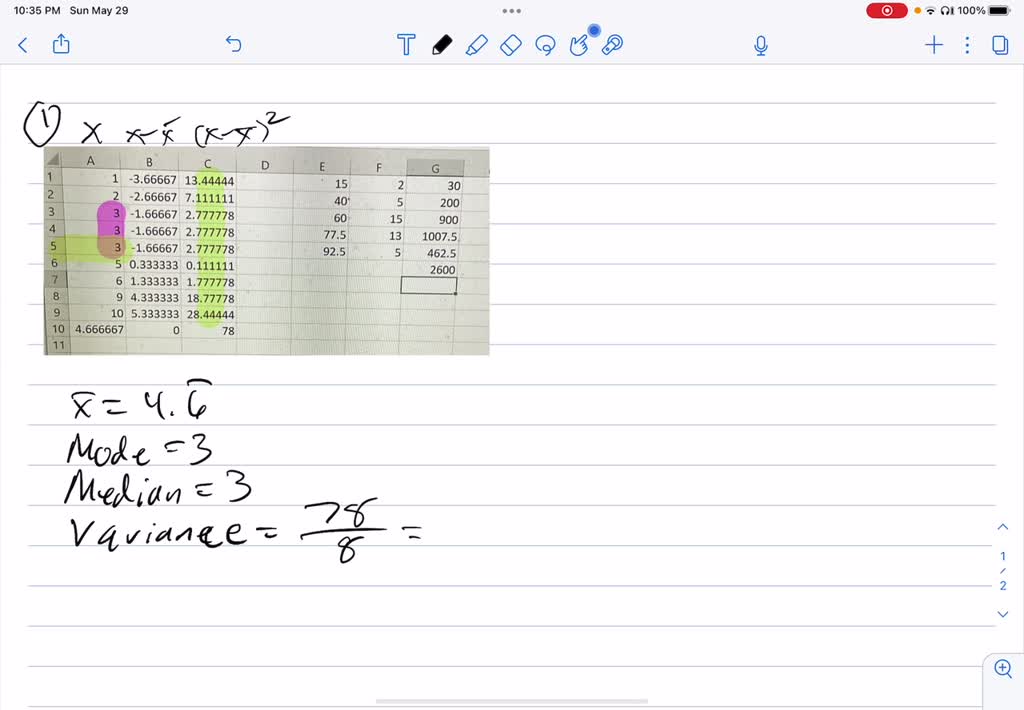 10:35 PM Sun May 29
100%
① x x-x̄ (x-x̄)²
A B C D E F G
1 1 -3.66667 13.44444 15 2 30
2 2 -2.66667 7.111111 40 5 200
3 3 -1.66667 2.777778 60 15 900
4 3 -1.66667 2.777778 77.5 13 1007.5
5 3 -1.66667 2.777778 92.5 5 462.5
6 5 0.333333 0.111111 2600
7 6 1.333333 1.777778
8 9 4.333333 18.77778
9 10 5.333333 28.44444
10 4.666667 0 78
11
x̄ = 4.6̅
Mode = 3
Median = 3
Variance = 78/8 =
1
/
2